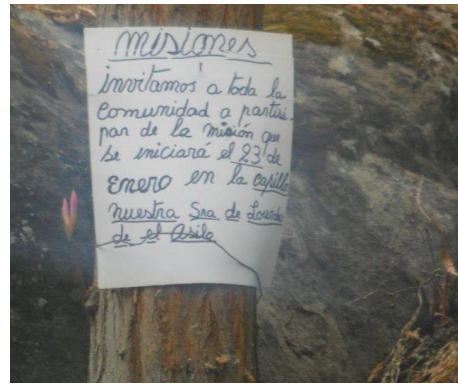 misiones
invitamos a toda la
comunidad a partisi-
par de la misión que
se iniciará el 23 de
enero en la capilla
nuestra Sra de Lourdes
de el Asilo